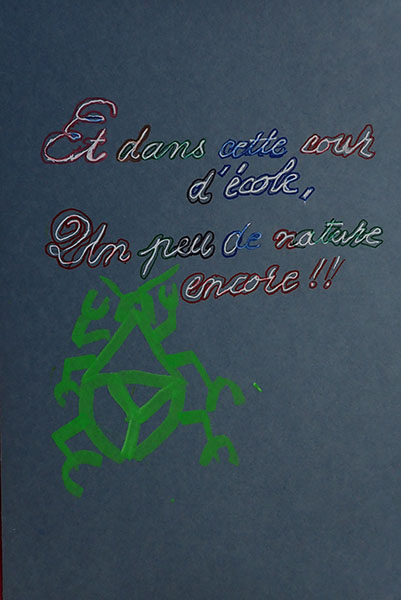 Et dans cette cour
d'école,
Un peu de nature
encore !!